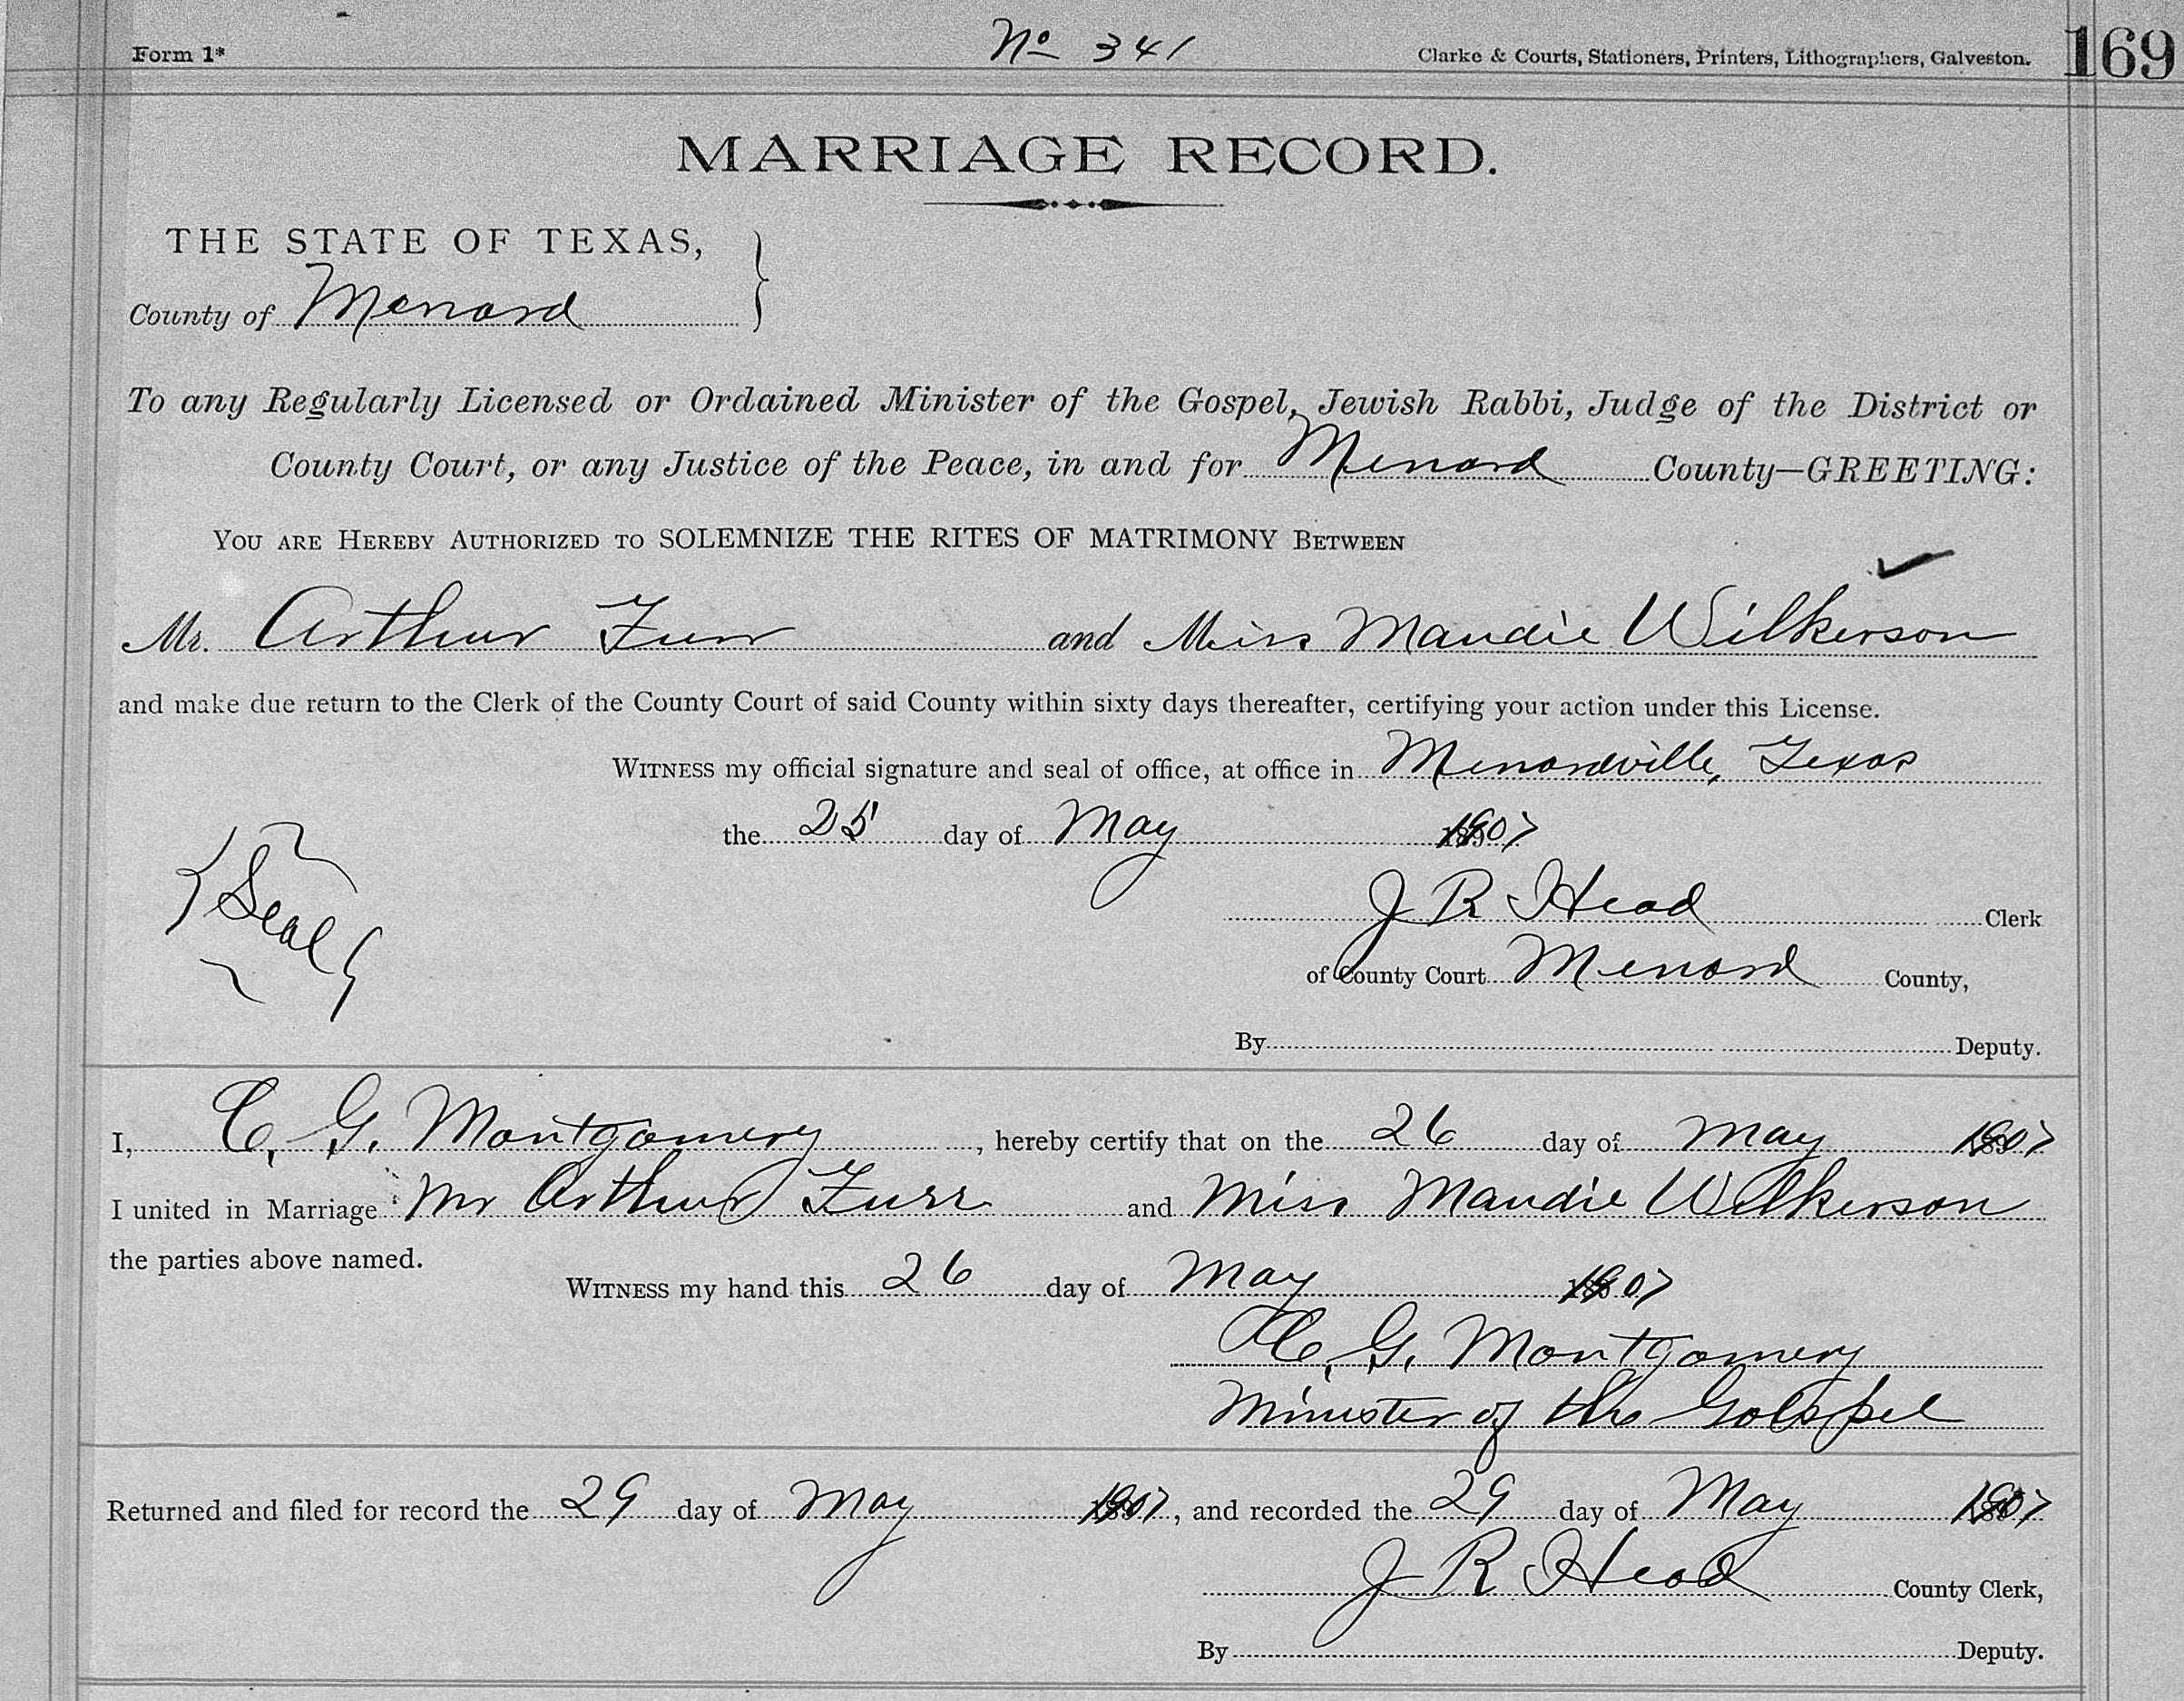 Form 1* No 341 Clarke & Courts, Stationers, Printers, Lithographers, Galveston. 169
MARRIAGE RECORD.
THE STATE OF TEXAS,
County of Menard
To any Regularly Licensed or Ordained Minister of the Gospel, Jewish Rabbi, Judge of the District or
County Court, or any Justice of the Peace, in and for Menard County—GREETING:
YOU ARE HEREBY AUTHORIZED TO SOLEMNIZE THE RITES OF MATRIMONY BETWEEN
Mr. Arthur Furr and Miss Maudie Wilkerson
and make due return to the Clerk of the County Court of said County within sixty days thereafter, certifying your action under this License.
WITNESS my official signature and seal of office, at office in Menardville, Texas
the 25 day of May 1907
Seal
J R Head Clerk
of County Court Menard County,
By Deputy.
I, C. G. Montgomery, hereby certify that on the 26 day of May 1907
I united in Marriage Mr Arthur Furr and Miss Maudie Wilkerson
the parties above named.
WITNESS my hand this 26 day of May 1907
C. G. Montgomery
Minister of the Golspel
Returned and filed for record the 29 day of May 1907, and recorded the 29 day of May 1907
J R Head County Clerk,
By Deputy.